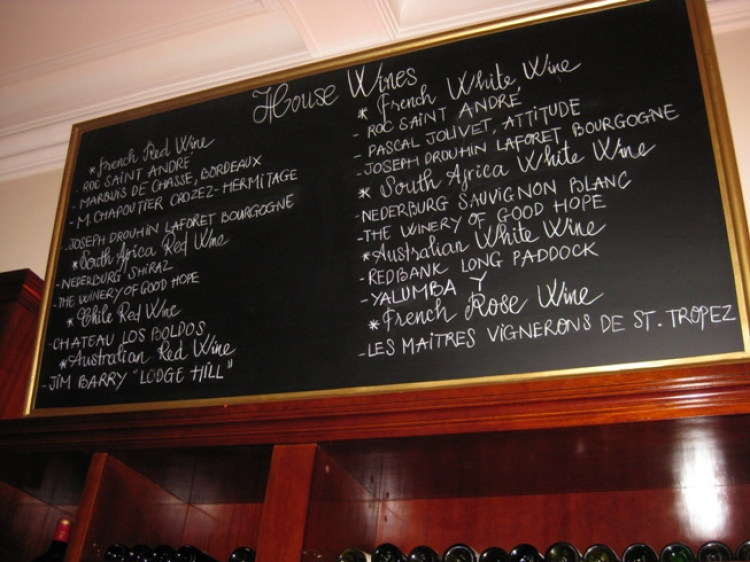 House Wines
*French Red Wine
- ROC SAINT ANDRÉ
- MARQUIS DE CHASSE, BORDEAUX
- M. CHAPOUTIER CROZEZ-HERMITAGE
- JOSEPH DROUHIN LAFORET BOURGOGNE
*South Africa Red Wine
- NEDERBURG SHIRAZ
- THE WINERY OF GOOD HOPE
*Chile Red Wine
- CHATEAU LOS BOLDOS
*Australian Red Wine
- JIM BARRY "LODGE HILL"
*French White Wine
- ROC SAINT ANDRÉ
- PASCAL JOLIVET, ATTITUDE
- JOSEPH DROUHIN LAFORET BOURGOGNE
*South Africa White Wine
- NEDERBURG SAUVIGNON BLANC
- THE WINERY OF GOOD HOPE
*Australian White Wine
- REDBANK LONG PADDOCK
- YALUMBA Y
*French Rose Wine
- LES MAITRES VIGNERONS DE ST. TROPEZ